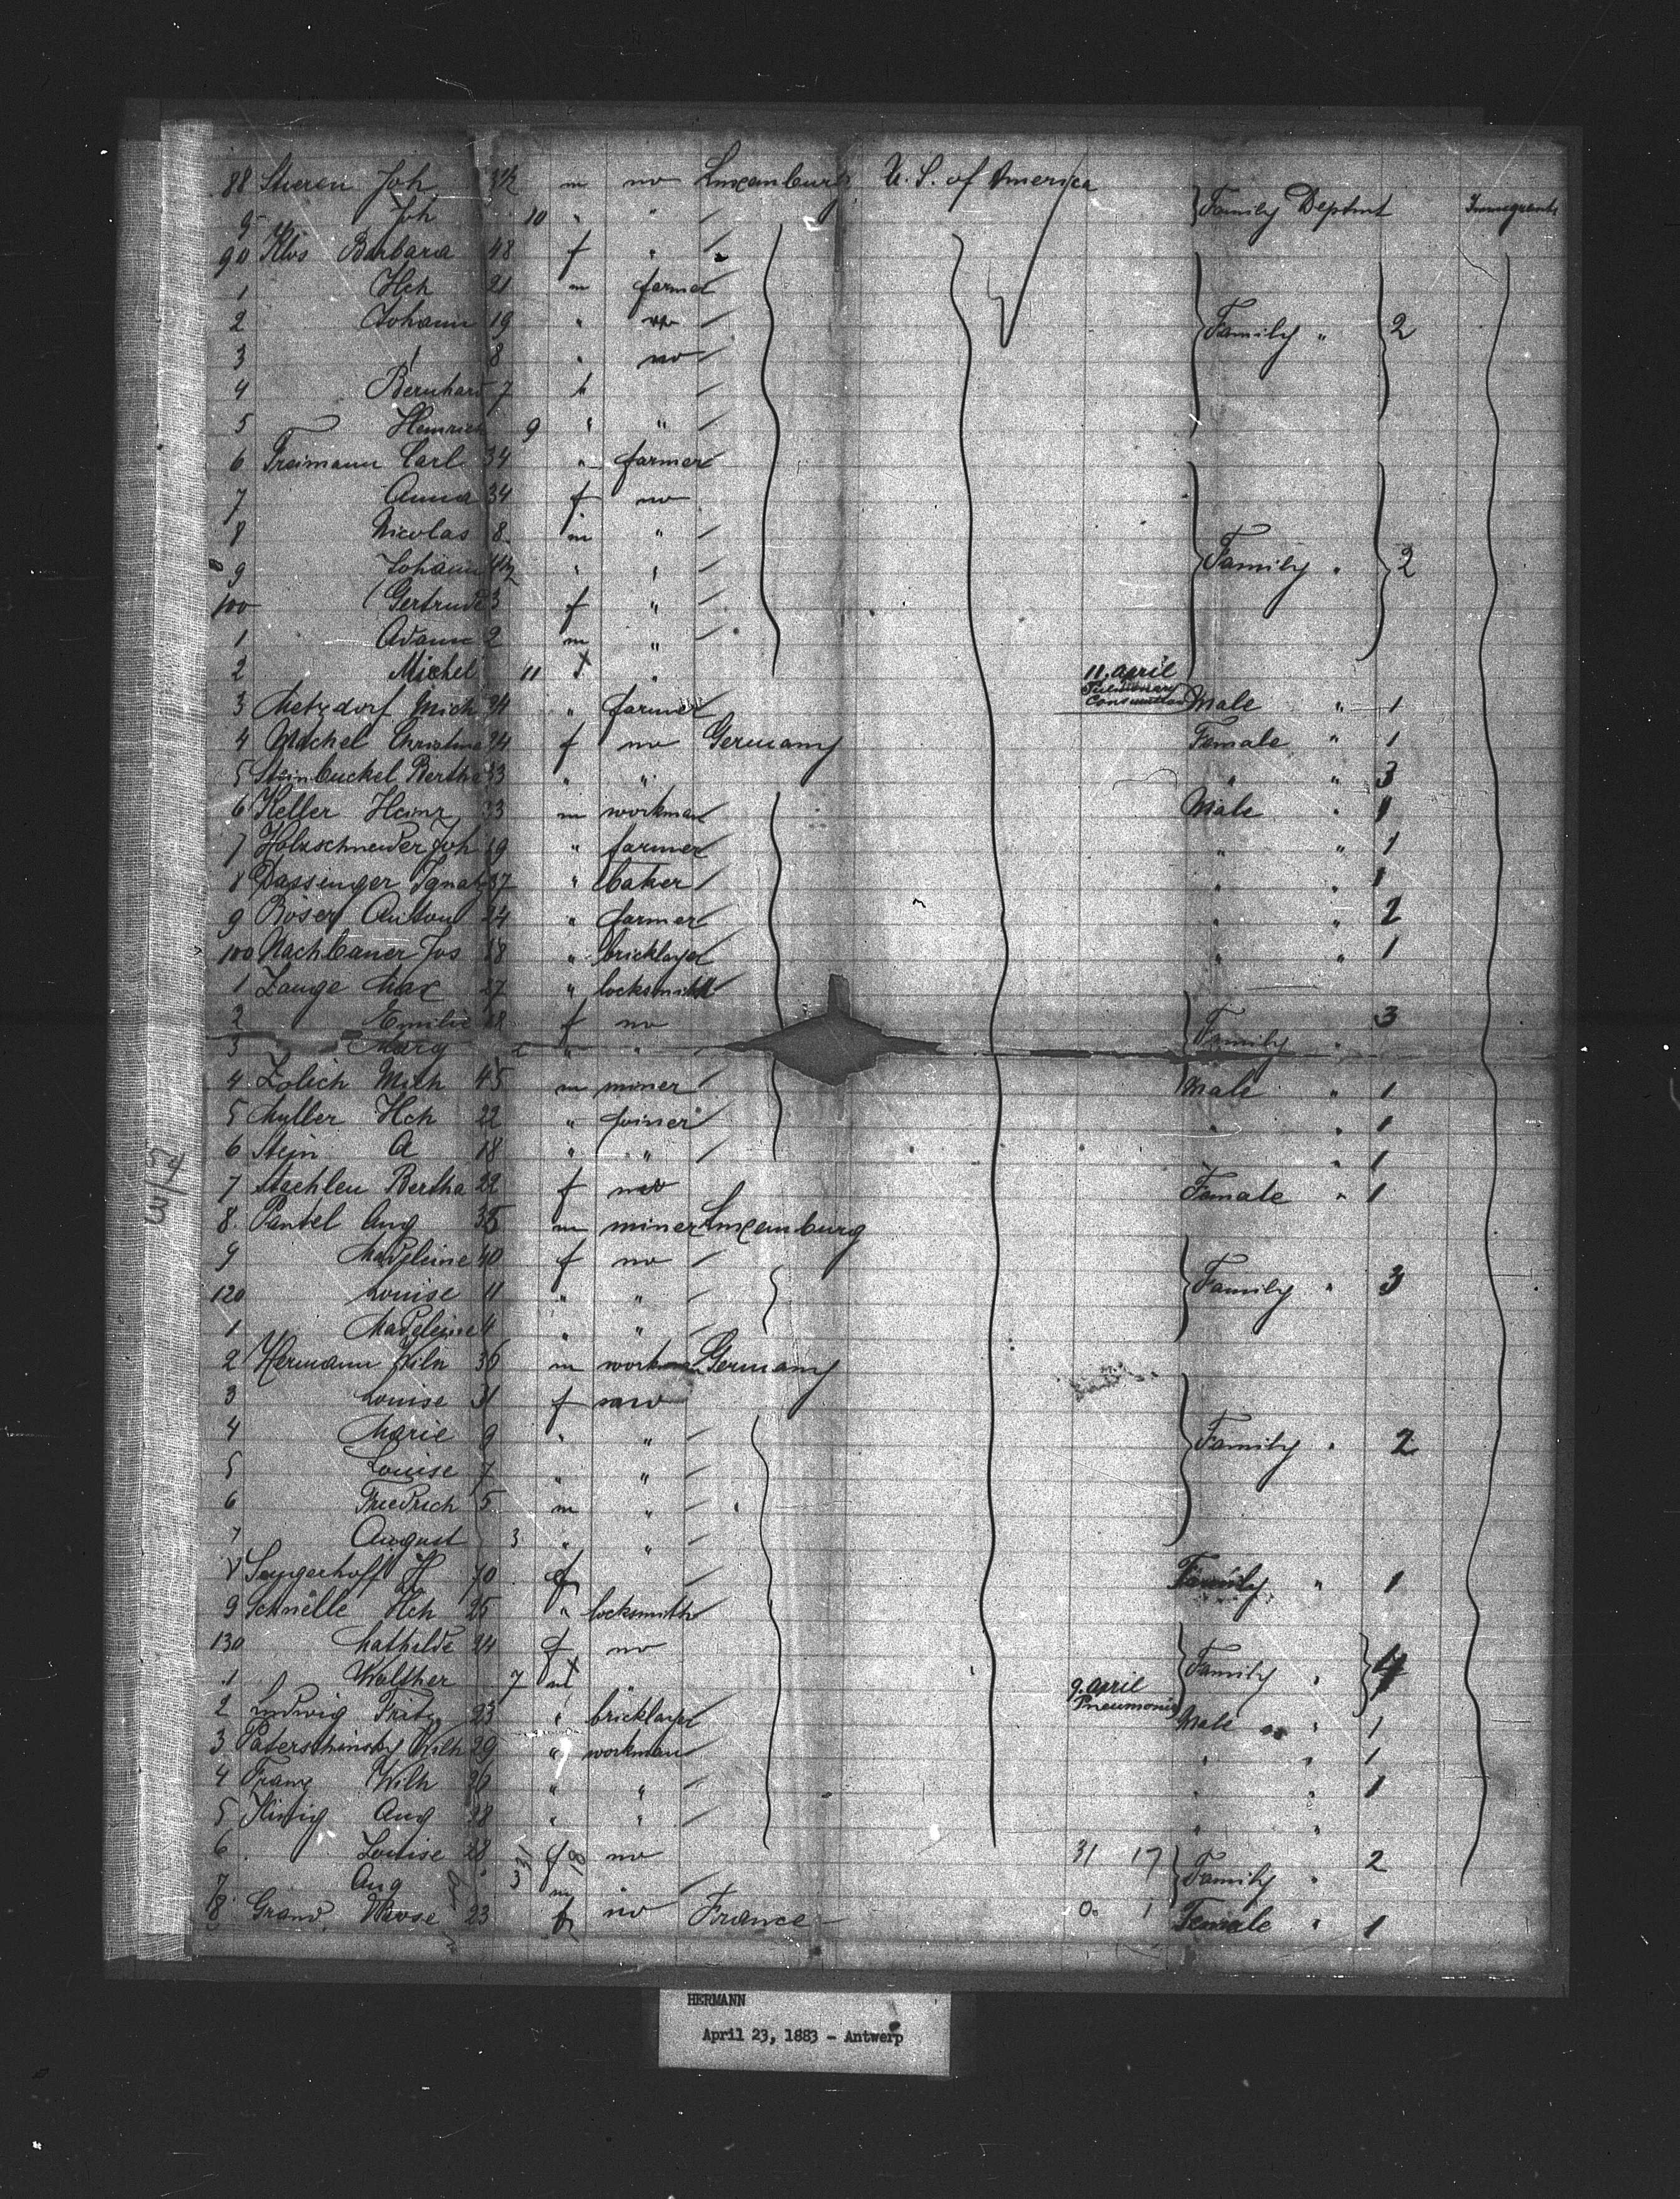 88 Stieren Joh 3 1/2 m no Luxemburg U. S. of America
9 Joh 10 " " Family Deptmt Immigrants
90 Klos Barbara 48 f "
1 Hch 21 m farmer
2 Johann 19 " Family " 2
3 8 " no
4 Bernhard 7
5 Heinrich 9 " "
6 Freimann Carl 34 " farmer
7 Anna 34 f no
8 Nicolas 8 m "
9 Johann 4 1/2 " " Family " 2
100 Gertrude 3 f "
1 Adam 2 m "
2 Michel 11 " 11. April
Pulmonary
Consumption
3 Metzdorf Mich 24 " farmer Male " 1
4 Christine 24 f no Germany Female " 1
5 Steinbuckel Bertha 33 " " " " 3
6 Keller Heinr 33 m workman Male " 1
7 Holzschneider Joh 19 " farmer " " 1
8 Dassenger Ignatz 37 " baker " " 1
9 Röser Anton 24 " farmer " " 2
100 Nachbauer Jos 18 " bricklayer " " 1
1 Zange Max 27 " locksmith
2 Emilie 28 f no Family 3
3 Marg " "
4 Zolich Mich 45 m miner Male " 1
5 Myller Hch 22 " joiner " " 1
6 Stein A 18 " " " 1
7 Staehleu Bertha 22 f no Female " 1
8 Pantel Aug 35 m miner Luxemburg
9 Madeleine 40 f no
120 Louise 11 " " Family " 3
1 Madeleine 4 " "
2 Hermann Wilh 36 m workman Germany
3 Louise 31 f no
4 Marie 9 " " Family " 2
5 Louise 7 " "
6 Friedrich 5 m "
7 August 3 " "
8 Seygerhoff H 70 f Family " 1
9 Schnelle Hch 25 " locksmith
130 Mathilde 24 f no
1 Walther 7 m " 9. April Family " 4
Pneumonia
2 Ludwig Fritz 23 " bricklayer Male " 1
3 Paterschinsky Wilh 29 " workman " " 1
4 Franz Wilh 26 " " " " 1
5 König Aug 28 " " " "
6 Louise 28 f no 31 17 Family " 2
7 Aug 3 m
8 Grand 23 f no France 0. 1 Female " 1
HERMANN
April 23, 1883 - Antwerp